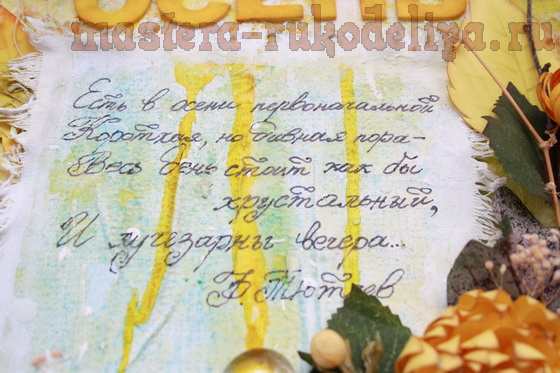 ОСЕНЬ
mastera-rukodeliya.ru
Есть в осени первоначальной
Короткая, но дивная пора-
Весь день стоит как бы
хрустальный,
И лучезарны вечера...
Ф Тютчев